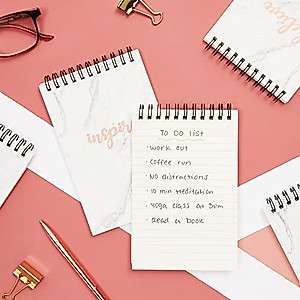 believe
inspire
TO DO list
· WORK OUT
· COFFEE RUN
· NO DISTRACTIONS
· 10 min MEDITATION
· YOGA CLASS AT 5PM
· READ A BOOK